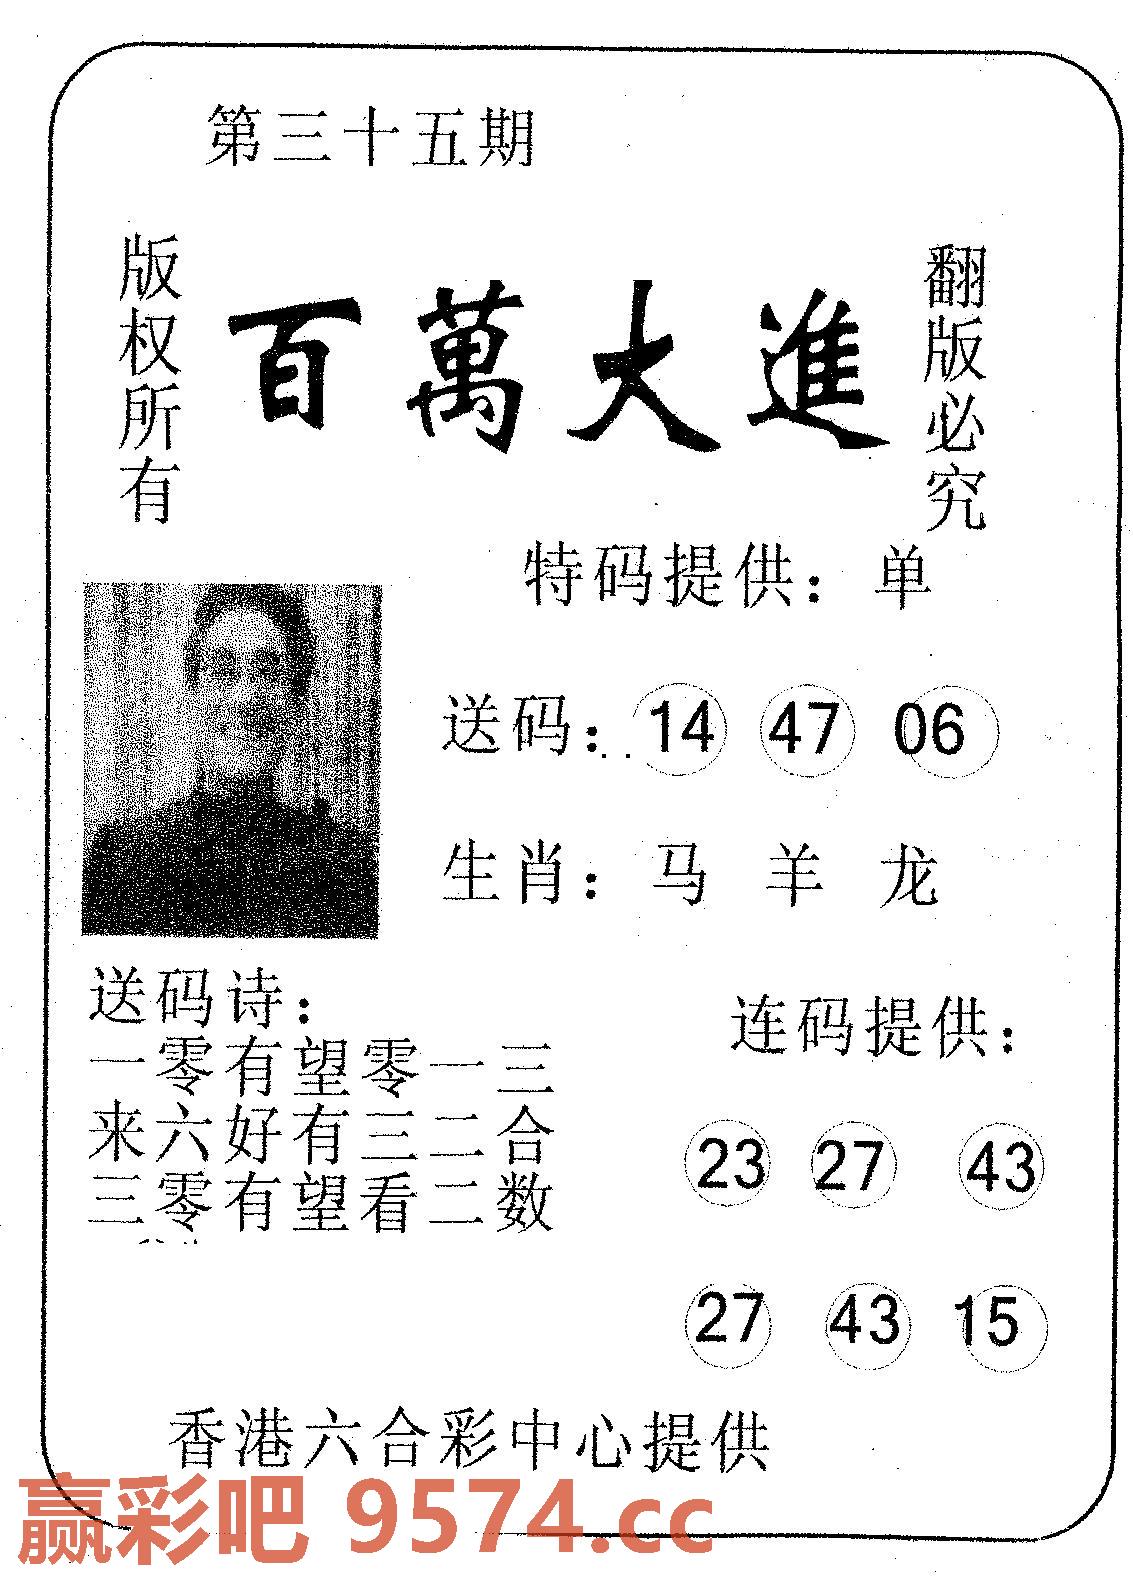 第三十五期
版权所有
百萬大進
翻版必究
特码提供：单
送码：14 47 06
生肖：马 羊 龙
送码诗：
一零有望零一三
来六好有三二合
三零有望看二数
连码提供：
23 27 43
27 43 15
香港六合彩中心提供
赢彩吧 9574.cc